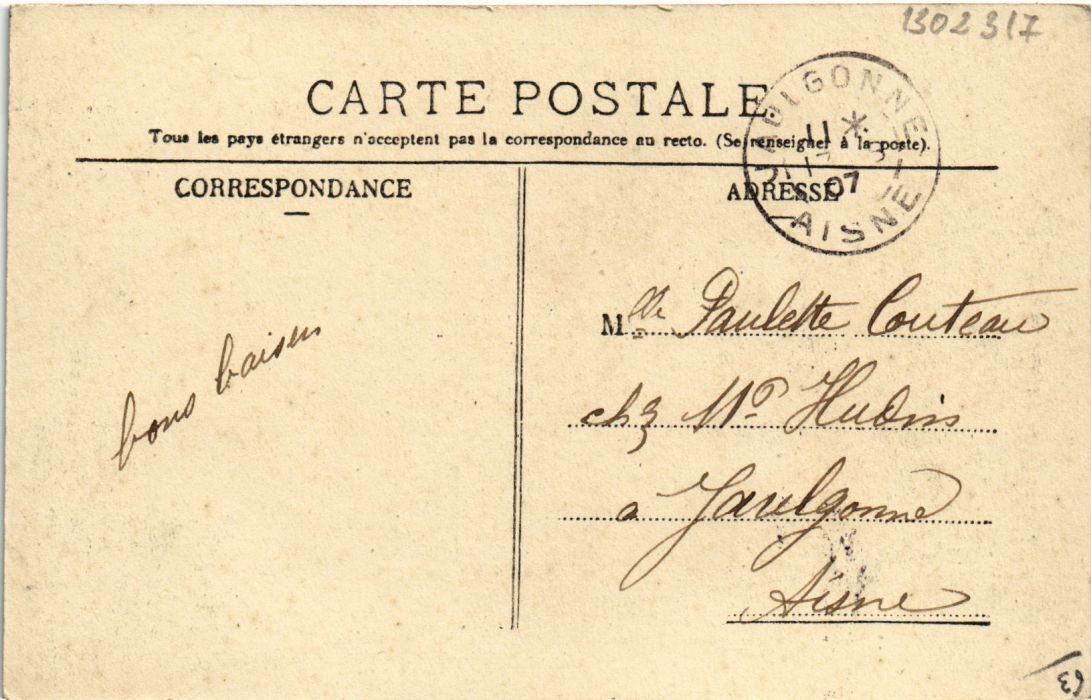 1302317
CARTE POSTALE
Tous les pays étrangers n'acceptent pas la correspondance au recto. (Se renseigner à la poste).
CORRESPONDANCE
ADRESSE
11 *
07
AISNE
bons baisers
Mlle Paulette Couteau
chz Md Hudin
a Jaulgonne
Aisne
63